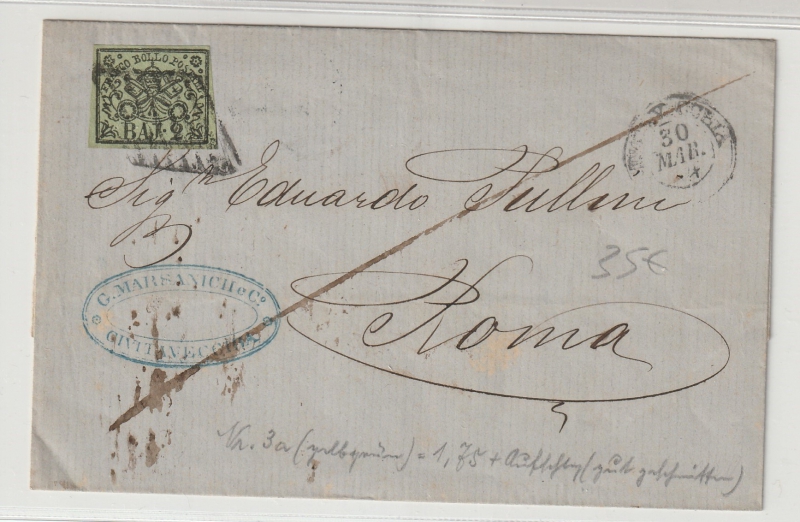 FRANCO BOLLO POSTALE
BAJ. 2
30
MAR.
Sig.r Eduardo
Roma
35€
G. MARSANICH e Co.
CIVITAVECCHIA
Nr. 3a (gelbgrün) = 1,75 + Aufschlag (gut geschnitten)